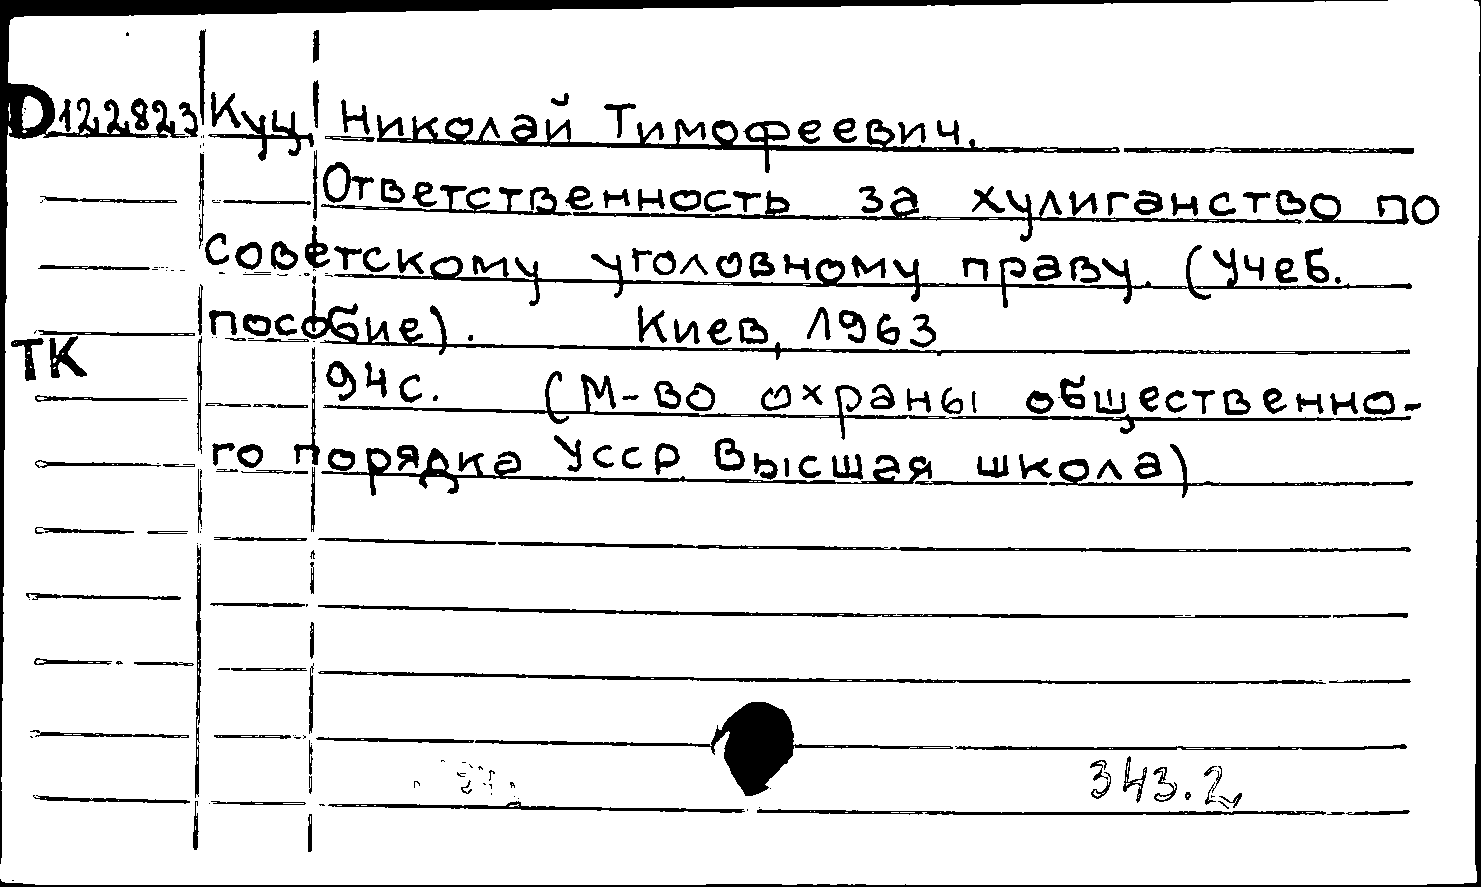 D122823 Куц, Николай Тимофеевич.
Ответственность за хулиганство по
советскому уголовному праву. (Учеб.
пособие). Киев, 1963
ТК
94с. (М-во охраны общественно-
го порядка УССР Высшая школа)
343.2